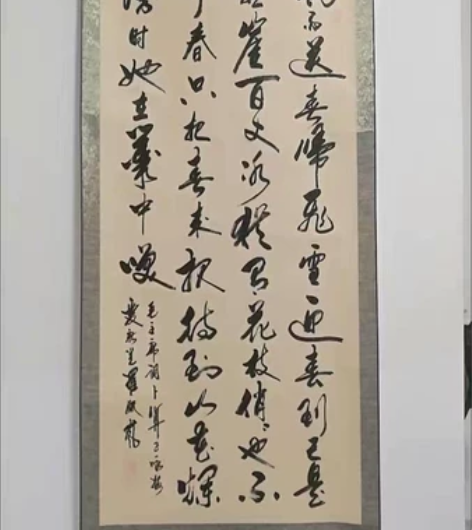 風雨送春歸飛雪迎春到已是
懸崖百丈冰猶有花枝俏俏也不
爭春只把春來報待到山花爛
漫时她在叢中笑
毛主席词卜算子咏梅